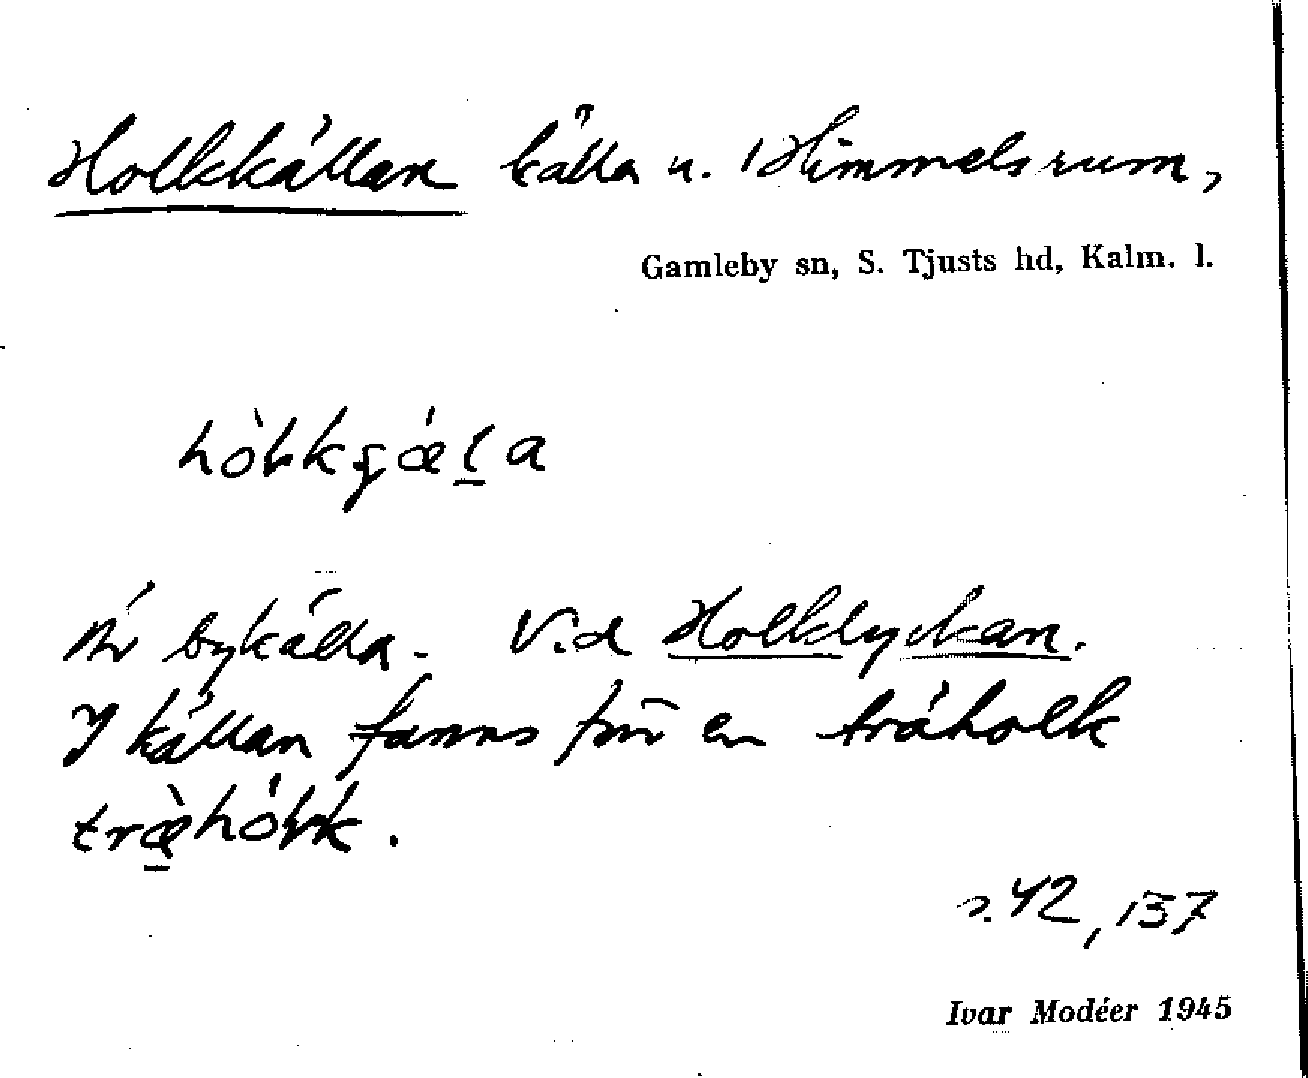 Holkkällan källa u. Himmelsrum,
Gamleby sn, S. Tjusts hd, Kalm. l.
Är bykälla. Vid Holklyckan.
I källan fanns förr en träholk
s. 42, 137
Ivar Modéer 1945